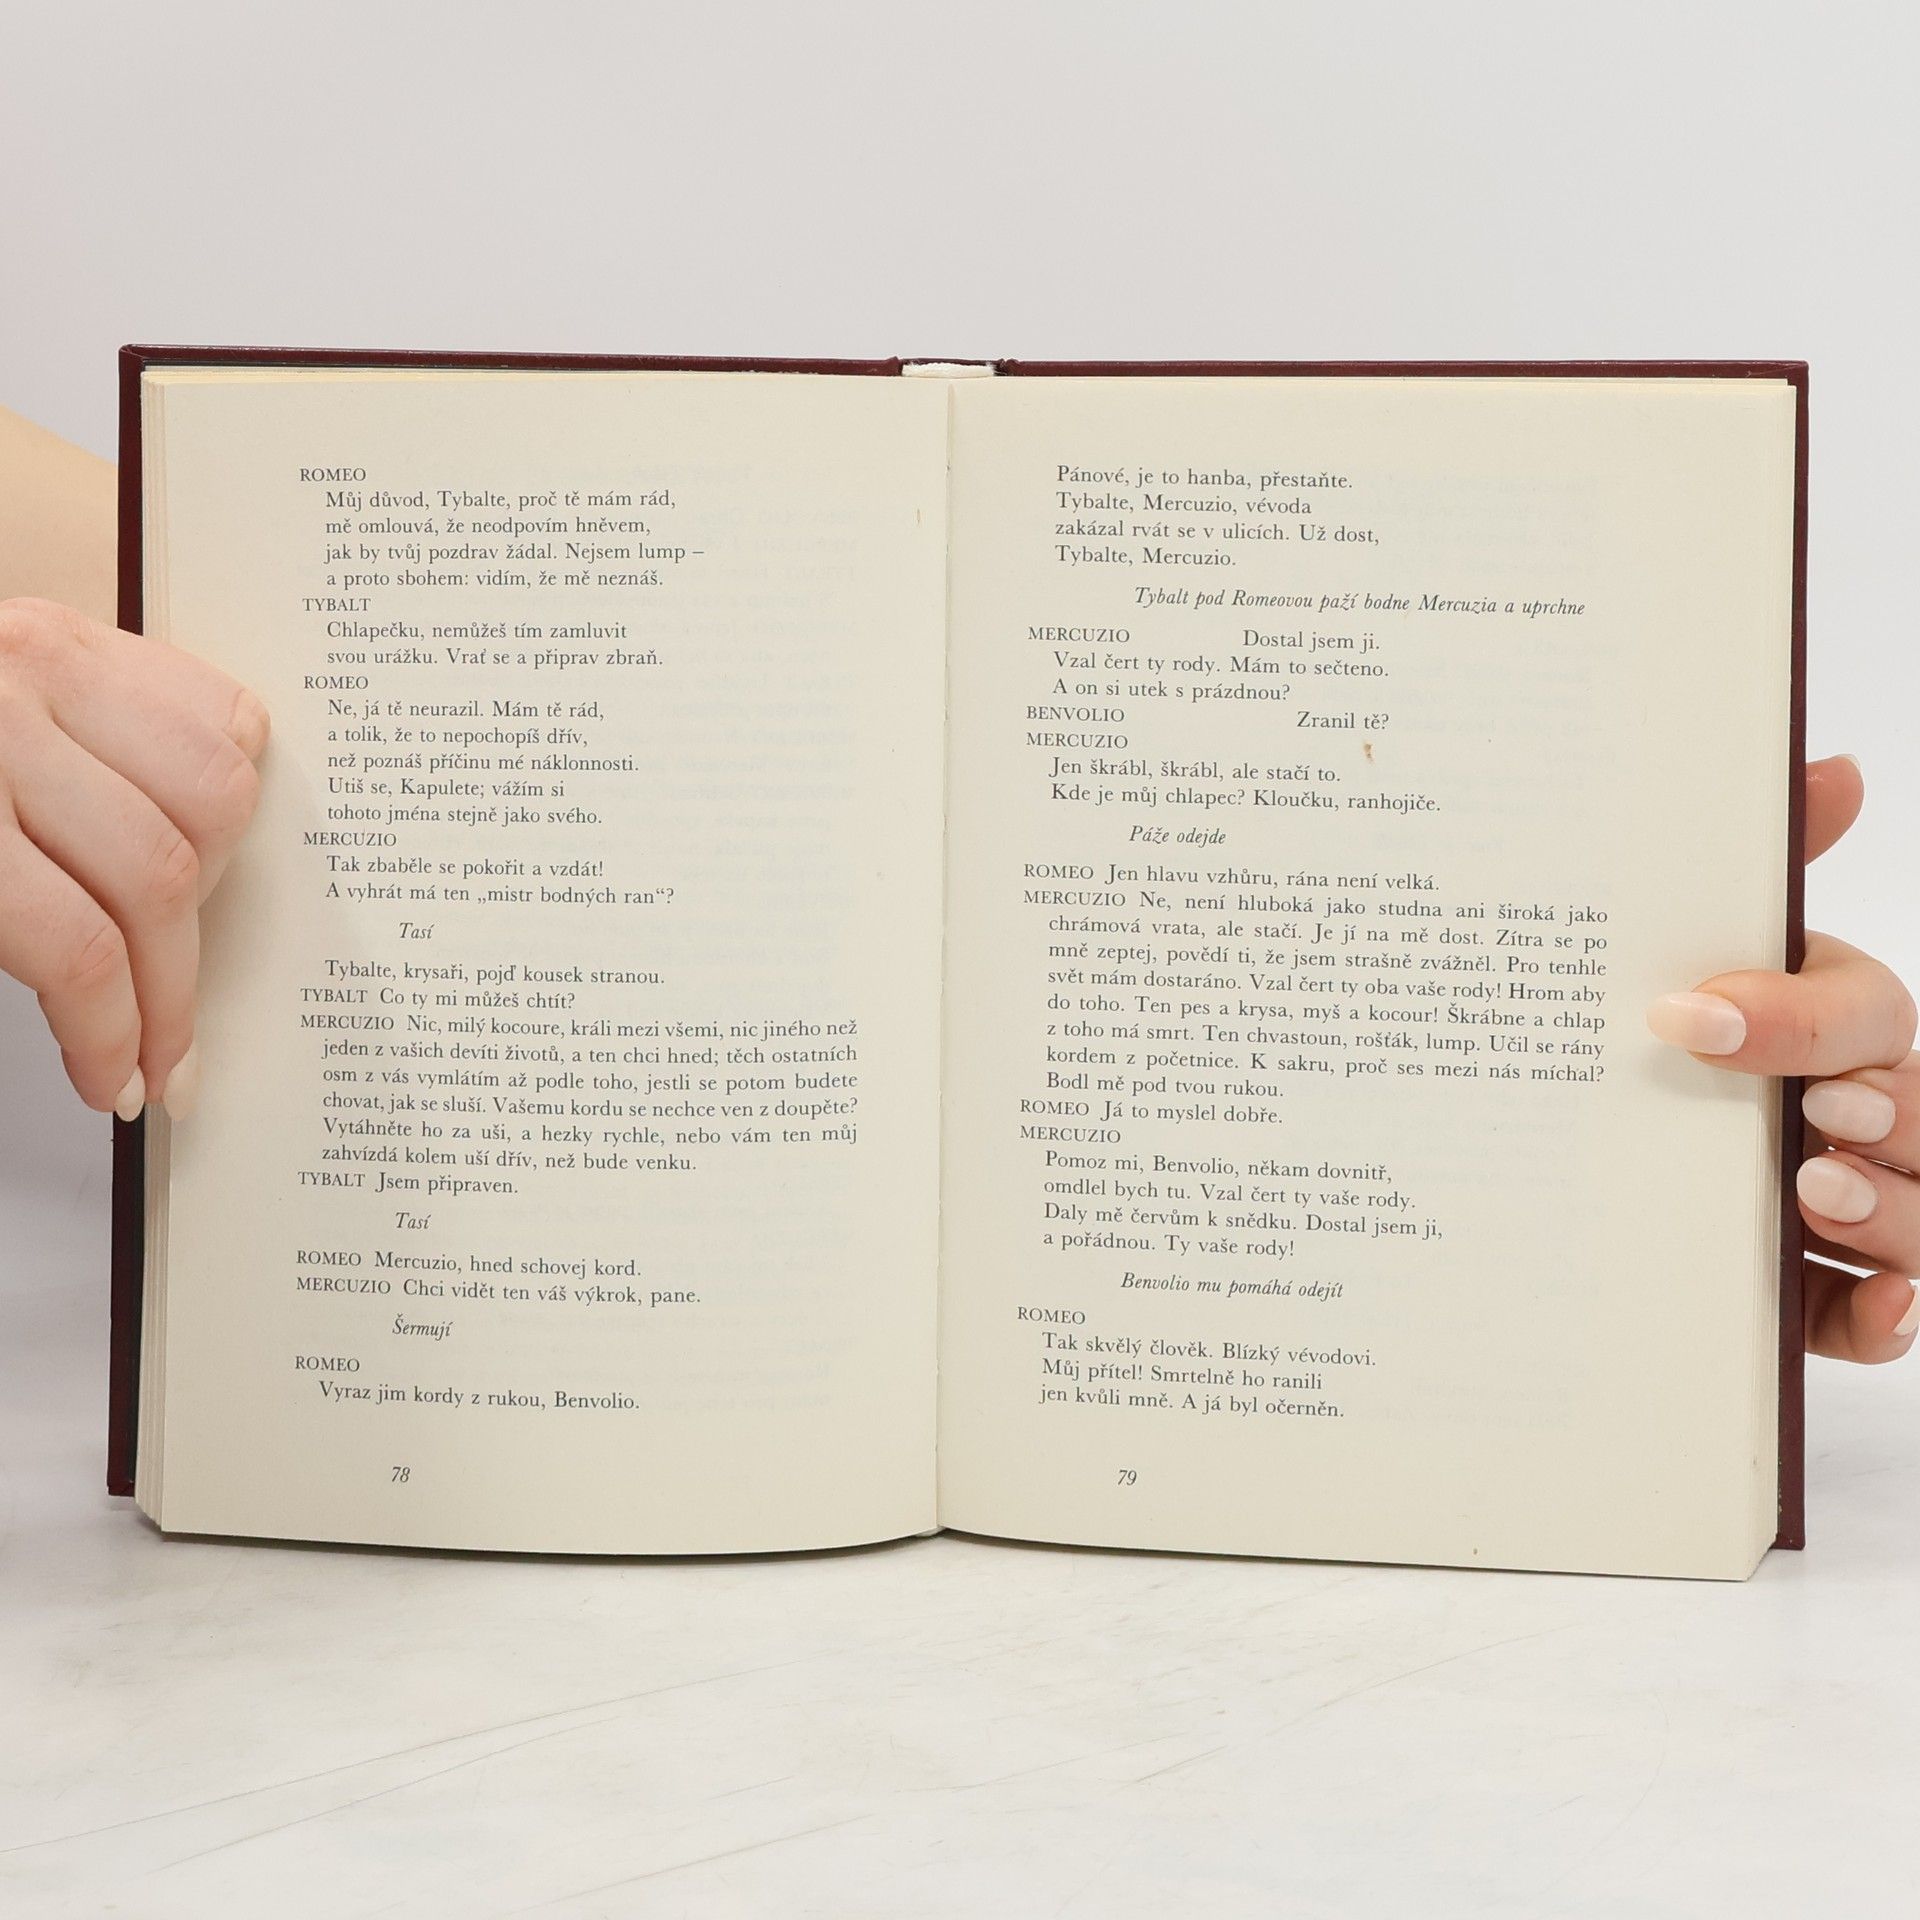 ROMEO
Můj důvod, Tybalte, proč tě mám rád,
mě omlouvá, že neodpovím hněvem,
jak by tvůj pozdrav žádal. Nejsem lump –
a proto sbohem: vidím, že mě neznáš.
TYBALT
Chlapečku, nemůžeš tím zamluvit
svou urážku. Vrať se a připrav zbraň.
ROMEO
Ne, já tě neurazil. Mám tě rád,
a tolik, že to nepochopíš dřív,
než poznáš příčinu mé náklonnosti.
Utiš se, Kapulete; vážím si
tohoto jména stejně jako svého.
MERCUZIO
Tak zbaběle se pokořit a vzdát!
A vyhrát má ten „mistr bodných ran“?
Tasí
Tybalte, krysaři, pojď kousek stranou.
TYBALT Co ty mi můžeš chtít?
MERCUZIO Nic, milý kocoure, králi mezi všemi, nic jiného než
jeden z vašich devíti životů, a ten chci hned; těch ostatních
osm z vás vymlátím až podle toho, jestli se potom budete
chovat, jak se sluší. Vašemu kordu se nechce ven z doupěte?
Vytáhněte ho za uši, a hezky rychle, nebo vám ten můj
zahvízdá kolem uší dřív, než bude venku.
TYBALT Jsem připraven.
Tasí
ROMEO Mercuzio, hned schovej kord.
MERCUZIO Chci vidět ten váš výkrok, pane.
Šermují
ROMEO
Vyraz jim kordy z rukou, Benvolio.
78
Pánové, je to hanba, přestaňte.
Tybalte, Mercuzio, vévoda
zakázal rvát se v ulicích. Už dost,
Tybalte, Mercuzio.
Tybalt pod Romeovou paží bodne Mercuzia a uprchne
MERCUZIO Dostal jsem ji.
Vzal čert ty rody. Mám to sečteno.
A on si utek s prázdnou?
BENVOLIO Zranil tě?
MERCUZIO
Jen škrábl, škrábl, ale stačí to.
Kde je můj chlapec? Kloučku, ranhojiče.
Páže odejde
ROMEO Jen hlavu vzhůru, rána není velká.
MERCUZIO Ne, není hluboká jako studna ani široká jako
chrámová vrata, ale stačí. Je jí na mě dost. Zítra se po
mně zeptej, povědí ti, že jsem strašně zvážněl. Pro tenhle
svět mám dostaráno. Vzal čert ty oba vaše rody! Hrom aby
do toho. Ten pes a krysa, myš a kocour! Škrábne a chlap
z toho má smrt. Ten chvastoun, rošťák, lump. Učil se rány
kordem z početnice. K sakru, proč ses mezi nás míchal?
Bodl mě pod tvou rukou.
ROMEO Já to myslel dobře.
MERCUZIO
Pomoz mi, Benvolio, někam dovnitř,
omdlel bych tu. Vzal čert ty vaše rody.
Daly mě červům k snědku. Dostal jsem ji,
a pořádnou. Ty vaše rody!
Benvolio mu pomáhá odejít
ROMEO
Tak skvělý člověk. Blízký vévodovi.
Můj přítel! Smrtelně ho ranili
jen kvůli mně. A já byl očerněn.
79